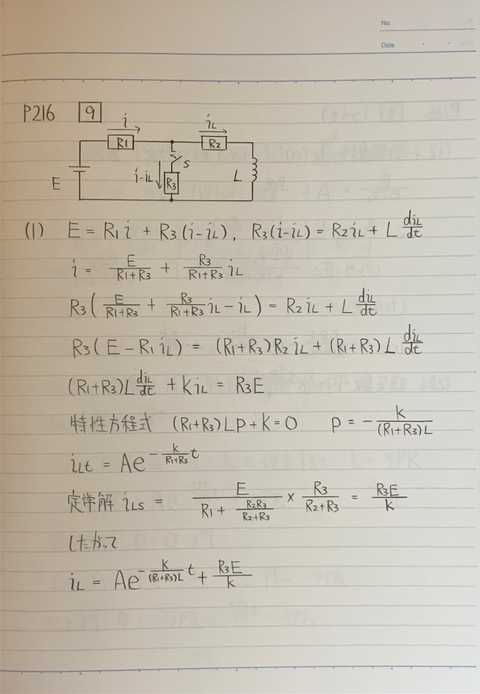 No.
Date
P216 9
i iL
R1 R2
S
E i-iL R3 L
(1) E = R1 i + R3 (i-iL), R3(i-iL) = R2 iL + L diL/dt
i = E/(R1+R3) + R3/(R1+R3) iL
R3( E/(R1+R3) + R3/(R1+R3) iL - iL ) = R2 iL + L diL/dt
R3( E - R1 iL ) = (R1+R3)R2 iL + (R1+R3) L diL/dt
(R1+R3)L diL/dt + k iL = R3E
特性方程式 (R1+R3)Lp + k = 0 p = - k/((R1+R3)L)
iLt = Ae^(- k/(R1+R3) t)
定常解 iLS = E/(R1 + R2R3/(R2+R3)) × R3/(R2+R3) = R3E/k
したがって
iL = Ae^(- k/((R1+R3)L) t) + R3E/k